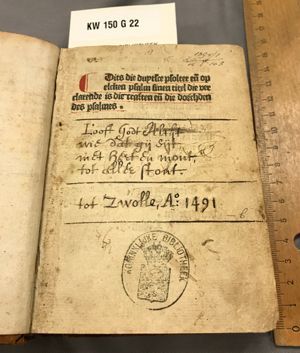 KW 150 G 22
Dits die duytsce psolter en̄ op
elcken psalm sinen titel die ver
clarende is die crachten en̄ die doechden
des psalmes .
Looft Godt Altyt
wie dat gy syt
met Hert en mont,
tot aller stont.
tot Zwolle, Aº. 1491
KONINKLIJKE BIBLIOTHEEK